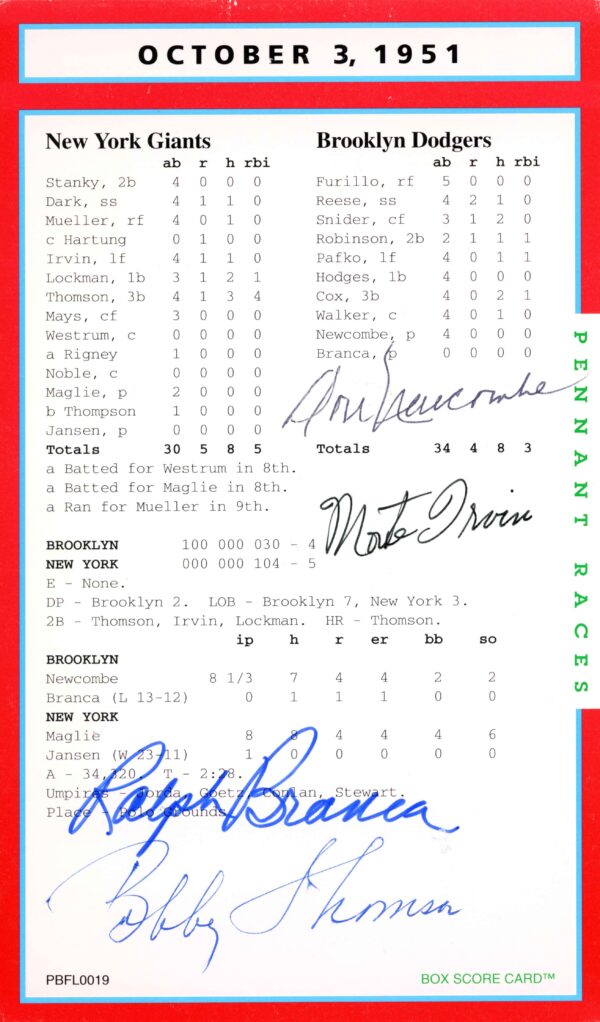 OCTOBER 3, 1951
New York Giants
ab r h rbi
Stanky, 2b 4 0 0 0
Dark, ss 4 1 1 0
Mueller, rf 4 0 1 0
c Hartung 0 1 0 0
Irvin, lf 4 1 1 0
Lockman, 1b 3 1 2 1
Thomson, 3b 4 1 3 4
Mays, cf 3 0 0 0
Westrum, c 0 0 0 0
a Rigney 1 0 0 0
Noble, c 0 0 0 0
Maglie, p 2 0 0 0
b Thompson 1 0 0 0
Jansen, p 0 0 0 0
Totals 30 5 8 5
Brooklyn Dodgers
ab r h rbi
Furillo, rf 5 0 0 0
Reese, ss 4 2 1 0
Snider, cf 3 1 2 0
Robinson, 2b 2 1 1 1
Pafko, lf 4 0 1 1
Hodges, 1b 4 0 0 0
Cox, 3b 4 0 2 1
Walker, c 4 0 1 0
Newcombe, p 4 0 0 0
Branca, p 0 0 0 0
Don Newcombe
Totals 34 4 8 3
a Batted for Westrum in 8th.
a Batted for Maglie in 8th.
a Ran for Mueller in 9th.
Monte Irvin
BROOKLYN 100 000 030 - 4
NEW YORK 000 000 104 - 5
E - None.
DP - Brooklyn 2. LOB - Brooklyn 7, New York 3.
2B - Thomson, Irvin, Lockman. HR - Thomson.
ip h r er bb so
BROOKLYN
Newcombe 8 1/3 7 4 4 2 2
Branca (L 13-12) 0 1 1 1 0 0
NEW YORK
Maglie 8 8 4 4 4 6
Jansen (W 23-11) 1 0 0 0 0 0
A - 34,320. T - 2:28.
Umpires - Jorda, Goetz, Conlan, Stewart.
Place - Polo Grounds
Ralph Branca
Bobby Thomson
PBFL0019
BOX SCORE CARD™
PENNANT RACES